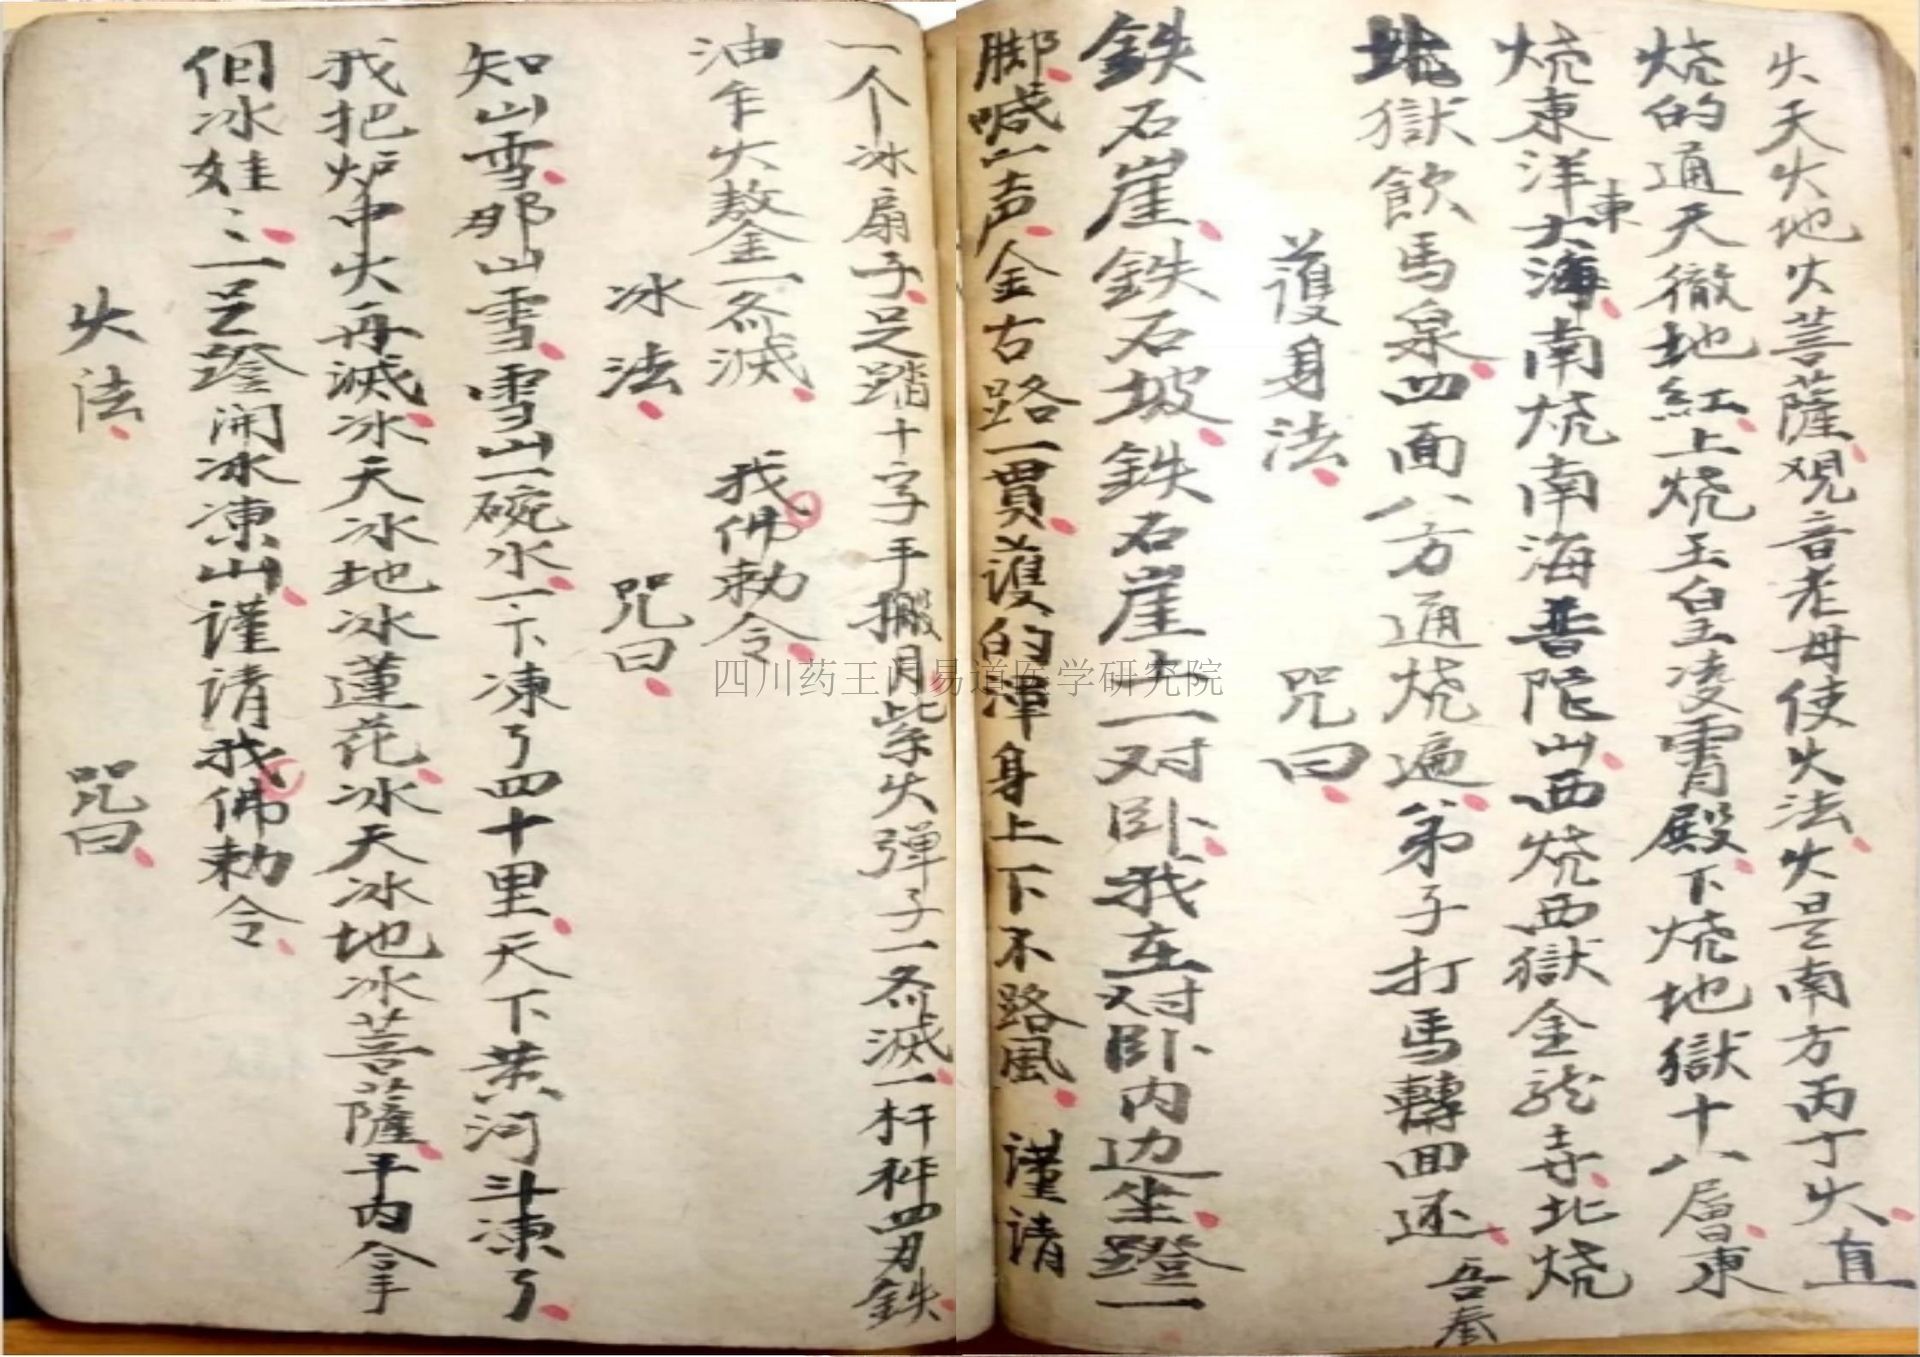 火天火地火菩薩观音老母使火法火是南方丙丁火直
烧的通天徹地紅上烧玉皇凌霄殿下烧地獄十八層東
烧東洋大東海南烧南海普陀山西烧西獄金龙寺北烧
地獄飲馬泉四面八方通烧遍弟子打馬轉回还吾奉
護身法 咒曰
鉄石崖鉄石坡鉄石崖上一对卧我在对卧内边坐蹬一
脚喊一声金古路一貫護的渾身上下不路風 謹請
一个冰扇子足踏十字手搬月紫火弹子一杀滅一杆秤四刃鉄
油乍火鏊一杀滅 我佛勅令
冰法 咒曰
知山雪那山雪雪山一碗水一下凍了四十里天下黄河斗凍了
我把炉中火再滅冰天冰地冰蓮花冰天冰地冰菩薩手内拿
個冰娃〻一足蹬開冰凍山謹请我佛勅令
火法 咒曰
四川药王肖易道医学研究院